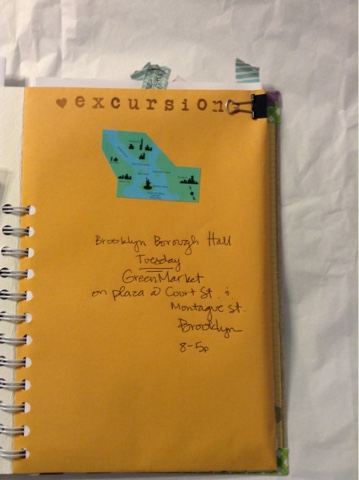 ♥excursion
Brooklyn Borough Hall
Tuesday
GreenMarket
on plaza @ Court St. &
Montague St.
Brooklyn
8-5p